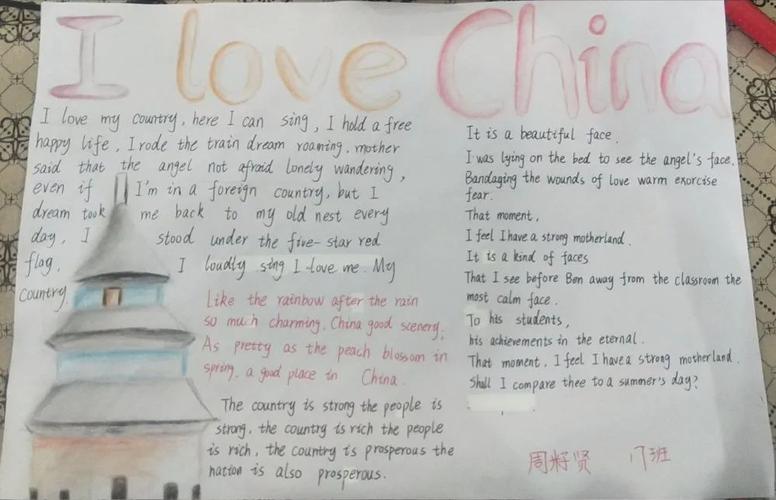 I love China
I love my country, here I can sing, I hold a free
happy life, I rode the train dream roaming, mother
said that the angel not afraid lonely wandering,
even if I'm in a foreign country, but I
dream took me back to my old nest every
day, I stood under the five-star red
flag, I loudly sing I love me. My
country.
Like the rainbow after the rain
so much charming. China good scenery,
As pretty as the peach blossom in
spring, a good place in China.
The country is strong the people is
strong, the country is rich the people
is rich, the country is prosperous the
nation is also prosperous.
It is a beautiful face.
I was lying on the bed to see the angel's face,
Bandaging the wounds of love warm exorcise
fear.
That moment,
I feel I have a strong motherland.
It is a kind of faces
That I see before Ben away from the classroom the
most calm face.
To his students,
his achievements in the eternal.
That moment, I feel I have a strong motherland.
Shall I compare thee to a summer's day?
周籽贤 17班